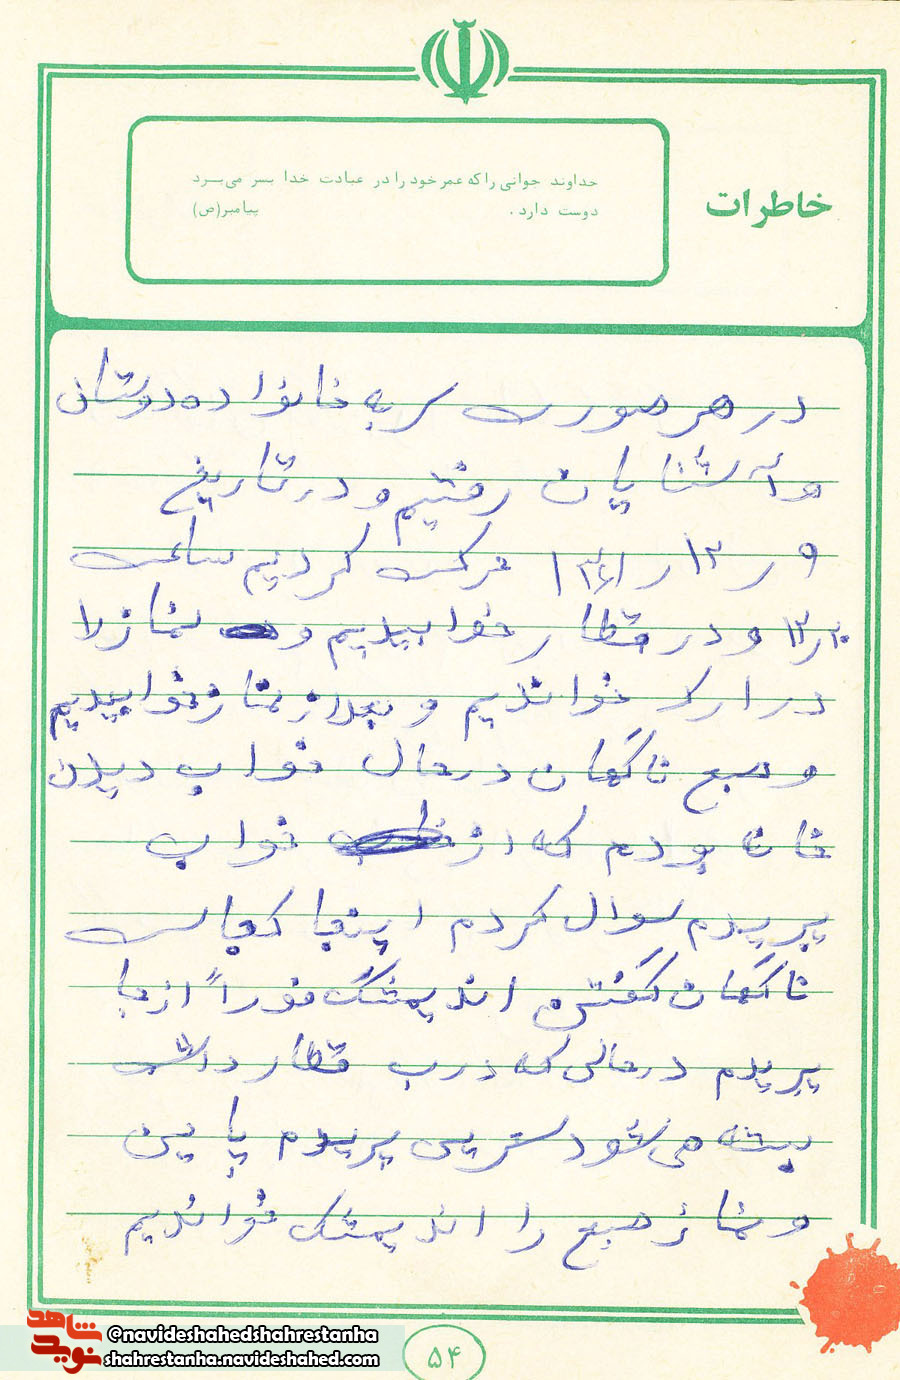 خاطرات
خداوند جوانی را که عمر خود را در عبادت خدا بسر می‌برد
دوست دارد. پیامبر(ص)
در هر صورت سر به خانواده دوستان
و آشنایان رفتیم و در تاریخ
۹ ر ۱۲ ر ۱۳۶۱ حرکت کردیم ساعت
۱۲٫۲۰ و در قطار خوابیدیم و نماز را
در اراک خواندیم و بعد از نماز خوابیدیم
و صبح ناگهان در حال خواب دیدن
خانه بودم که از خواب
پریدم سوال کردم اینجا کجاست
ناگهان گفتن اندیمشک فوراً از جا
پریدم درحالی که درب قطار داشت
بسته می شود سریع پریدم پایین
و نماز صبح را اندیمشک خواندیم
۵۴
شاهد
نوید
@navideshahedshahrestanha
shahrestanha.navideshahed.com